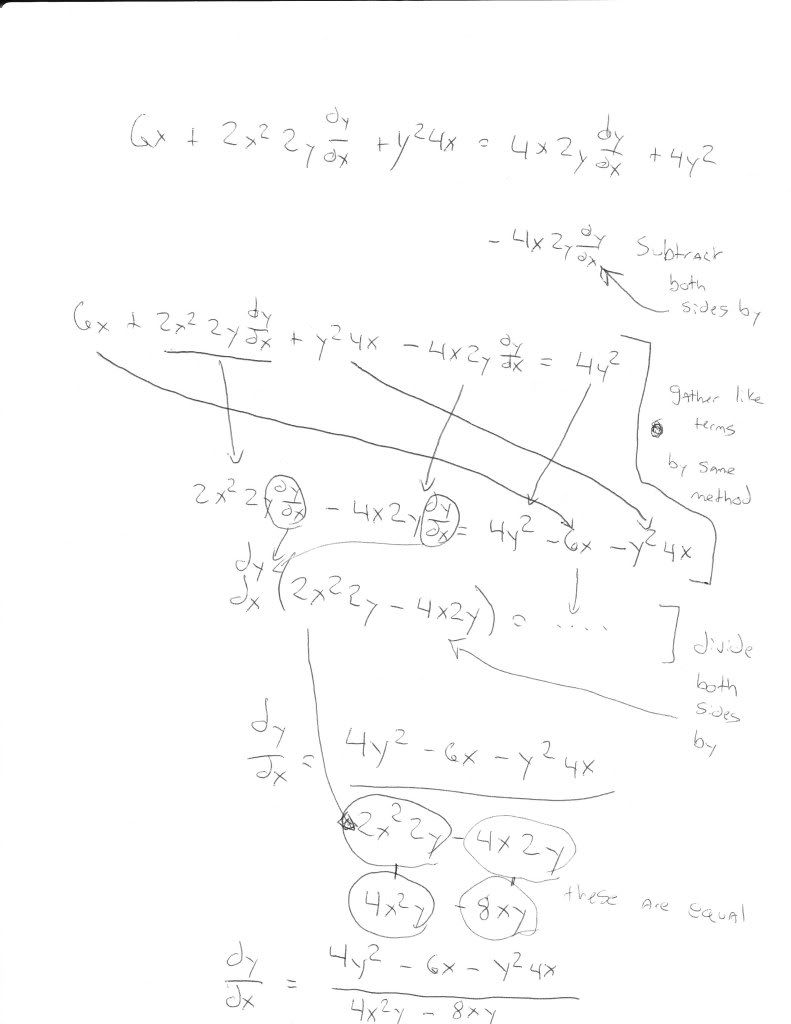 6x + 2x² 2y dy/dx + y² 4x = 4x 2y dy/dx + 4y²
- 4x 2y dy/dx subtract
both
sides by
6x + 2x² 2y dy/dx + y² 4x - 4x 2y dy/dx = 4y²
gather like
terms
by same
method
2x² 2y dy/dx - 4x 2y dy/dx = 4y² - 6x - y² 4x
dy/dx (2x² 2y - 4x 2y) = .....
divide
both
sides
by
dy/dx = (4y² - 6x - y² 4x)/(2x² 2y - 4x 2y)
4x²y - 8xy these are equal
dy/dx = (4y² - 6x - y² 4x)/(4x²y - 8xy)